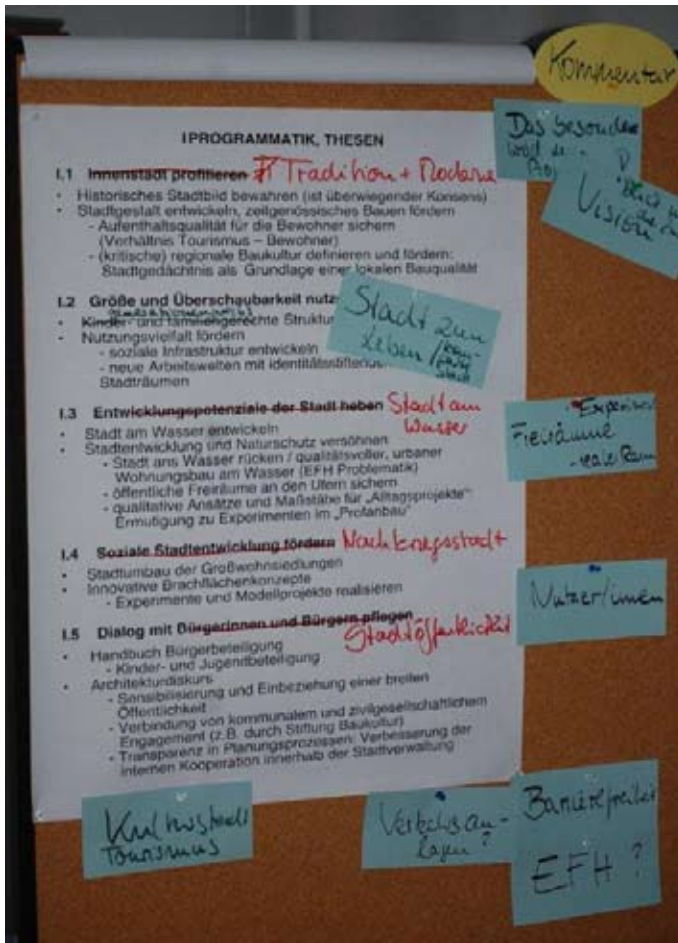 Kommentar
Das besondere
Vision
I PROGRAMMATIK, THESEN
I.1 Innenstadt profilieren Tradition + Moderne
• Historisches Stadtbild bewahren (ist überwiegender Konsens)
• Stadtgestalt entwickeln, zeitgenössisches Bauen fördern
- Aufenthaltsqualität für die Bewohner sichern
(Verhältnis Tourismus – Bewohner)
- (kritische) regionale Baukultur definieren und fördern:
Stadtgedächtnis als Grundlage einer lokalen Bauqualität
I.2 Größe und Überschaubarkeit nutz
• Kinder- und familiengerechte Struktur
• Nutzungsvielfalt fördern
- soziale Infrastruktur entwickeln
- neue Arbeitswelten mit identitätsstiftenden
Stadträumen
Stadt zum
Leben /
I.3 Entwicklungspotenziale der Stadt heben Stadt am
Wasser
• Stadt am Wasser entwickeln
• Stadtentwicklung und Naturschutz versöhnen
- Stadt ans Wasser rücken / qualitätsvoller, urbaner
Wohnungsbau am Wasser (EFH Problematik)
- öffentliche Freiräume an den Ufern sichern
- qualitative Ansätze und Maßstäbe für „Alltagsprojekte“:
Ermutigung zu Experimenten im „Profanbau“
Freiräume
- reale Raum
I.4 Soziale Stadtentwicklung fördern Nachkriegsstadt
• Stadtumbau der Großwohnsiedlungen
• Innovative Brachflächenkonzepte
- Experimente und Modellprojekte realisieren
Nutzer/innen
I.5 Dialog mit Bürgerinnen und Bürgern pflegen
Stadtöffentlichkeit
• Handbuch Bürgerbeteiligung
- Kinder- und Jugendbeteiligung
• Architekturdiskurs
- Sensibilisierung und Einbeziehung einer breiten
Öffentlichkeit
- Verbindung von kommunalem und zivilgesellschaftlichem
Engagement (z.B. durch Stiftung Baukultur)
- Transparenz in Planungsprozessen: Verbesserung der
internen Kooperation innerhalb der Stadtverwaltung
Kulturstadt
Tourismus
Verkehsan-
lagen?
Barrierefreiheit
EFH ?